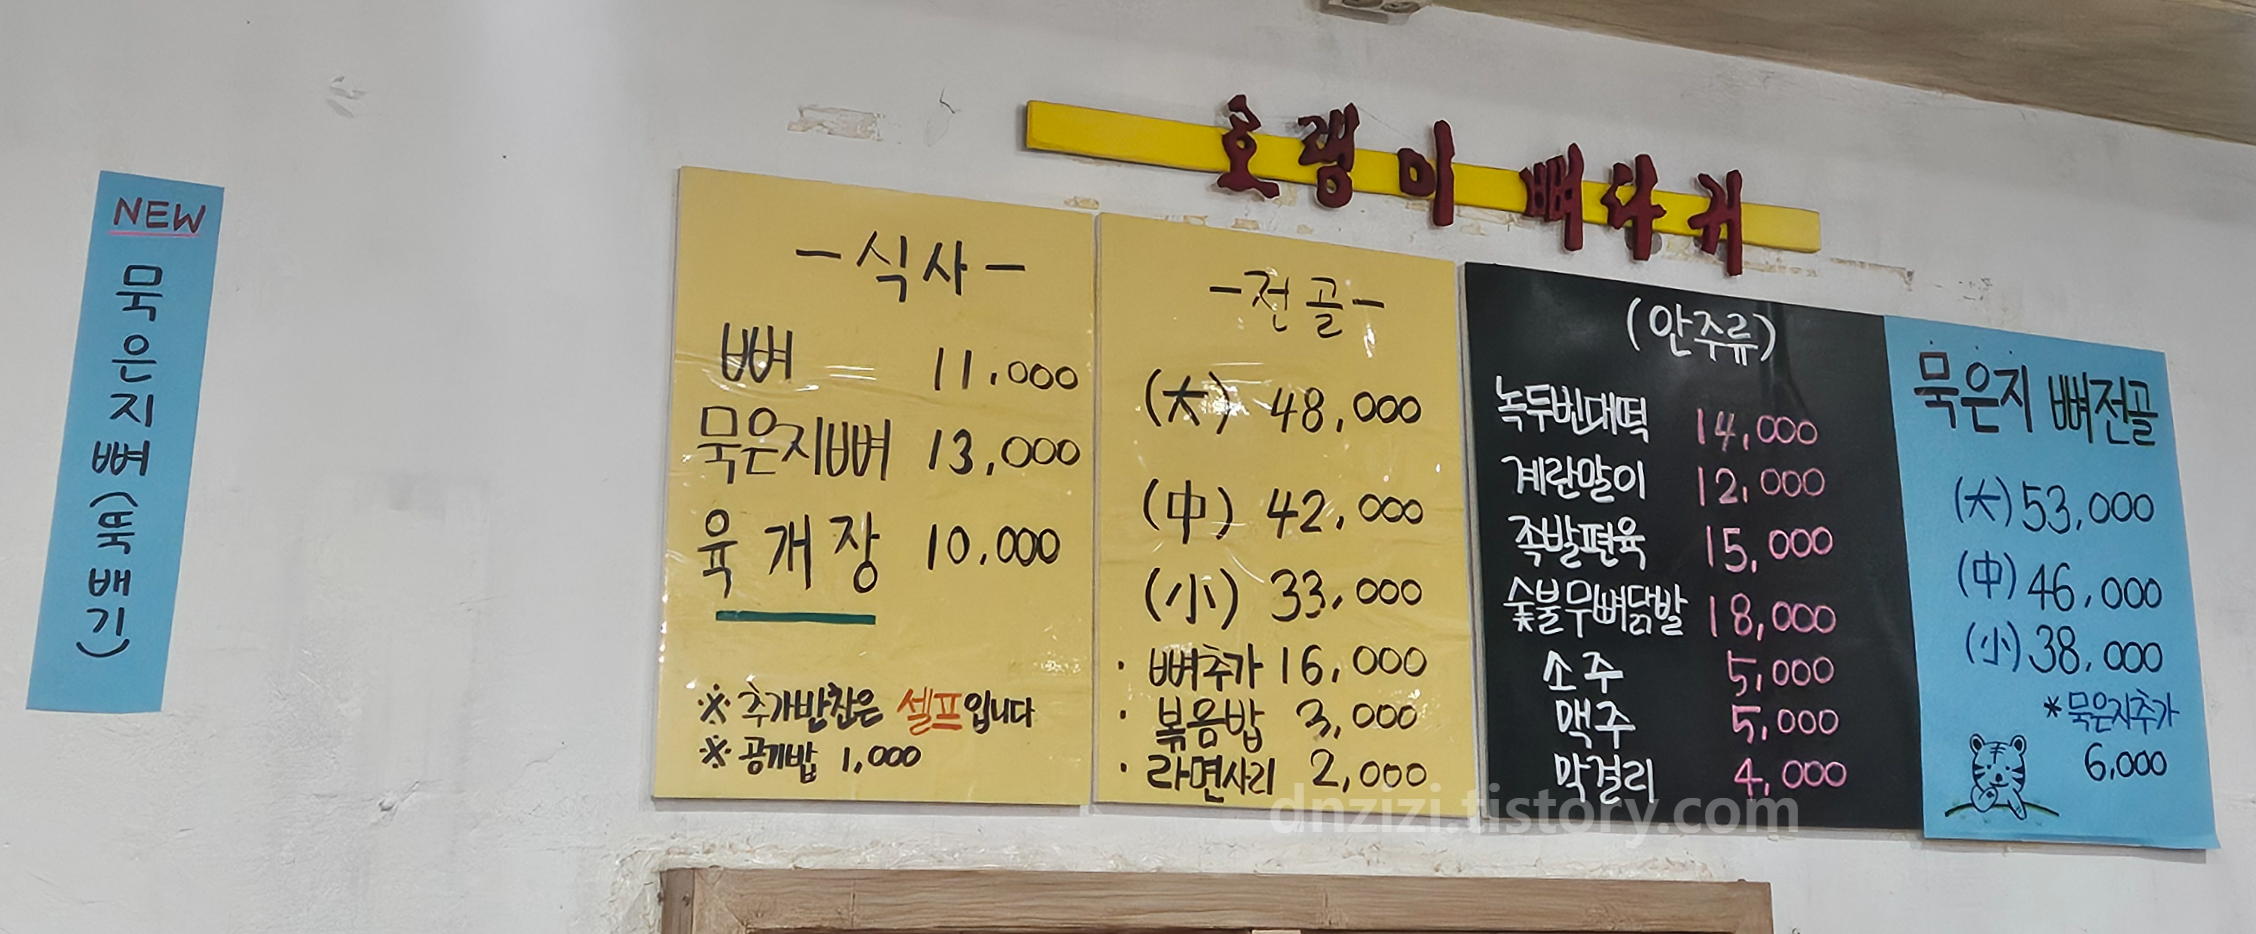 NEW
묵은지뼈(뚝배기)
호랭이뼈다귀
-식사-
뼈 11,000
묵은지뼈 13,000
육개장 10,000
※ 추가반찬은 셀프입니다
※ 공기밥 1,000
-전골-
(大) 48,000
(中) 42,000
(小) 33,000
· 뼈추가 16,000
· 볶음밥 3,000
· 라면사리 2,000
(안주류)
녹두빈대떡 14,000
계란말이 12,000
족발편육 15,000
숯불무뼈닭발 18,000
소주 5,000
맥주 5,000
막걸리 4,000
묵은지 뼈전골
(大) 53,000
(中) 46,000
(小) 38,000
*묵은지추가
6,000
dnzizi.tistory.com